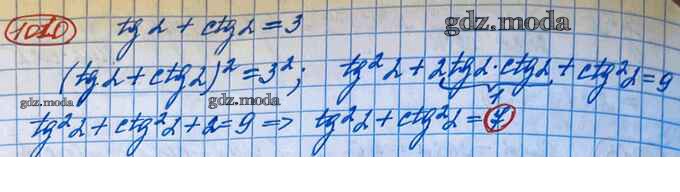 1010 tg α + ctg α = 3
gdz.moda
(tg α + ctg α)² = 3²; tg² α + 2 tg α · ctg α + ctg² α = 9
1
gdz.moda gdz.moda
tg² α + ctg² α + 2 = 9 => tg² α + ctg² α = 7